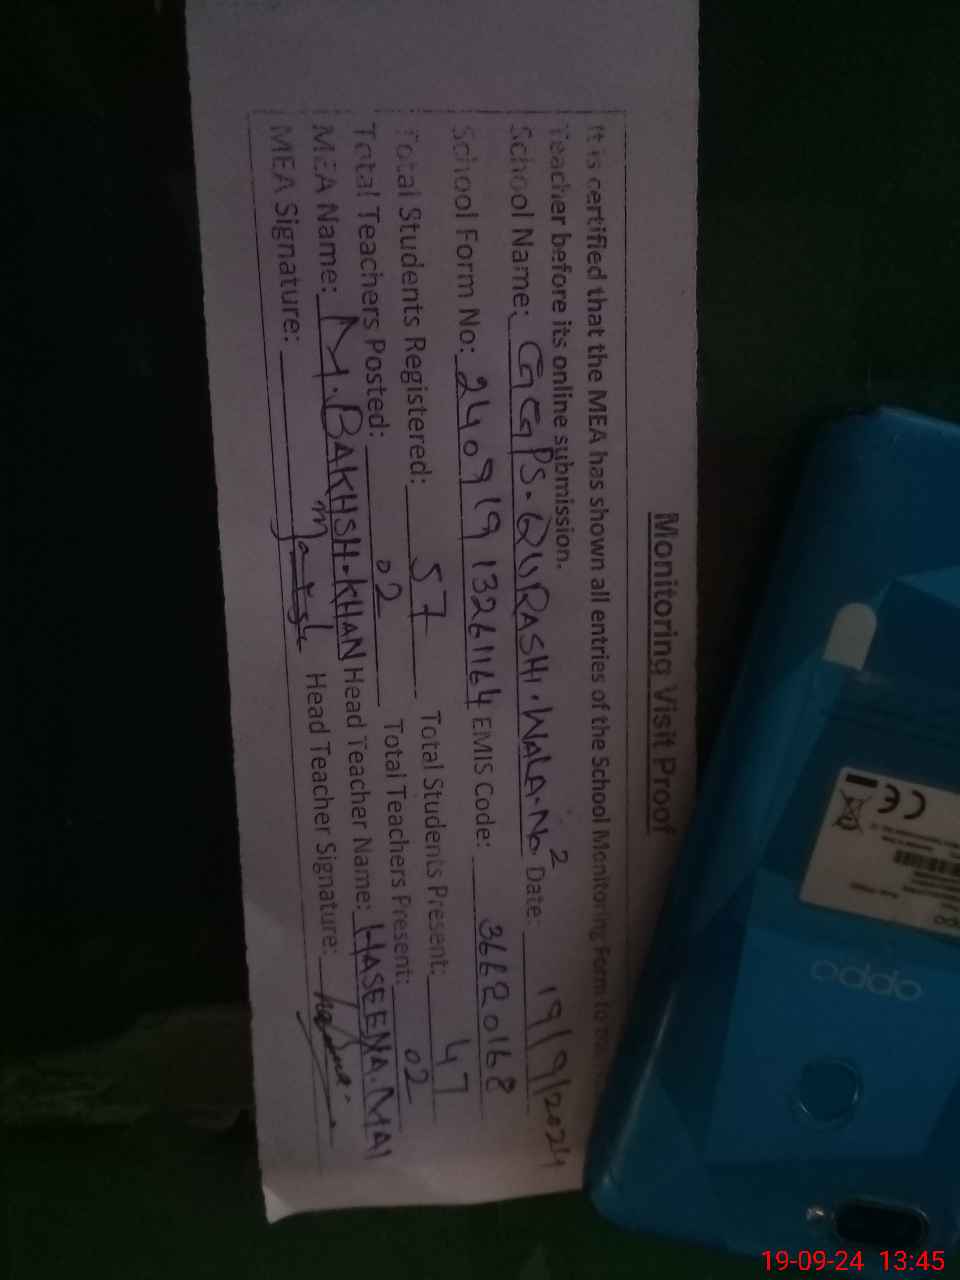 Monitoring Visit Proof
It is certified that the MEA has shown all entries of the School Monitoring Form to
Teacher before its online submission.
School Name: GGPS. QURASHI. WALA. No. 2 Date: 19/9/2024
School Form No: 240919 13261164 EMIS Code: 36620168
Total Students Registered: 57 Total Students Present: 47
Total Teachers Posted: 02 Total Teachers Present: 02
MEA Name: M. BAKHSH. KHAN Head Teacher Name: HASEENA. MAI
MEA Signature: Head Teacher Signature:
CE
oppo
19-09-24 13:45